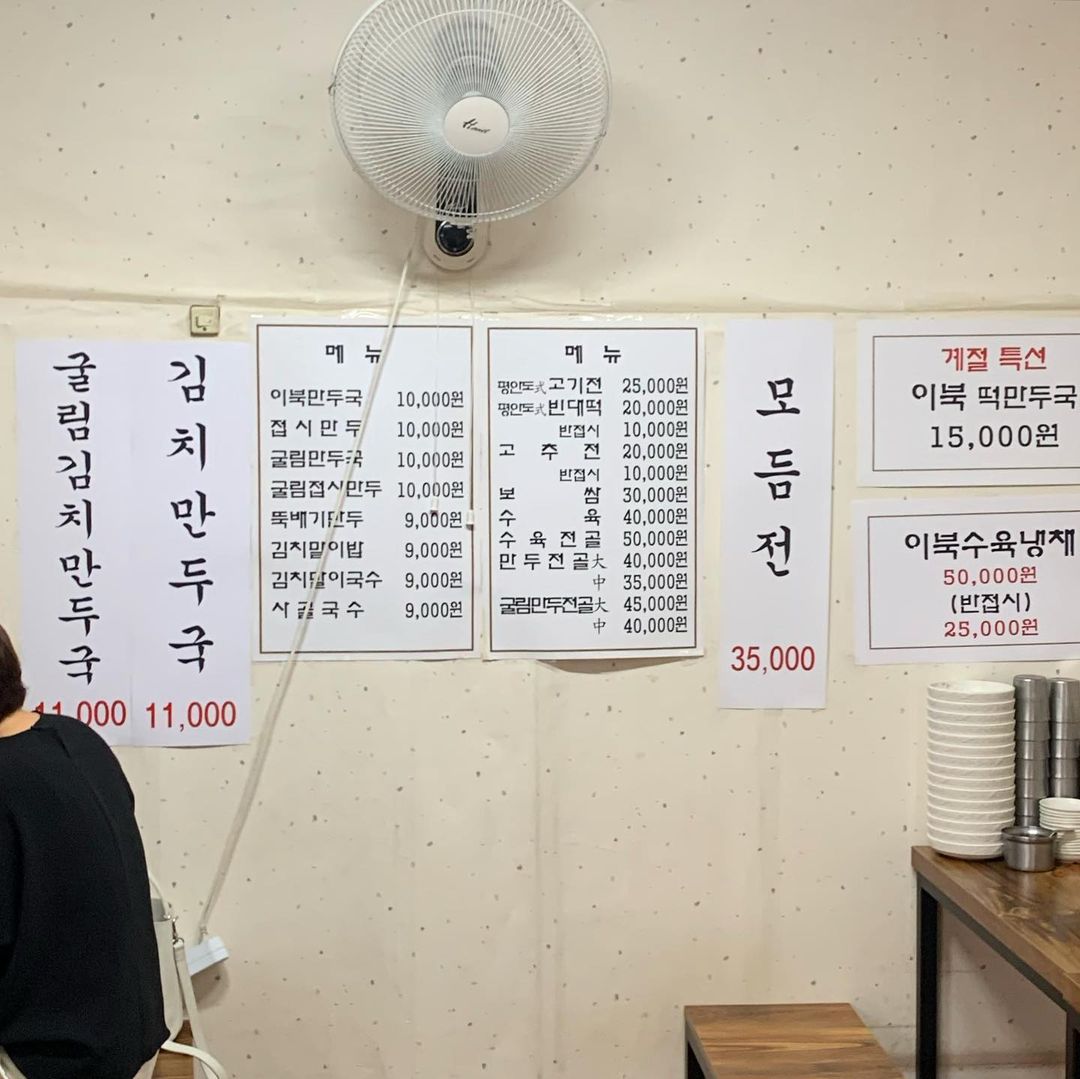 굴림김치만두국
11,000
김치만두국
11,000
메 뉴
이북만두국 10,000원
접시만두 10,000원
굴림만두국 10,000원
굴림접시만두 10,000원
뚝배기만두 9,000원
김치말이밥 9,000원
김치말이국수 9,000원
사골국수 9,000원
메 뉴
평안도式고기전 25,000원
평안도式빈대떡 20,000원
반접시 10,000원
고 추 전 20,000원
반접시 10,000원
보 쌈 30,000원
수 육 40,000원
수 육 전 골 50,000원
만 두 전 골 大 40,000원
中 35,000원
굴림만두전골大 45,000원
中 40,000원
모듬전
35,000
계절 특선
이북 떡만두국
15,000원
이북수육냉채
50,000원
(반접시)
25,000원